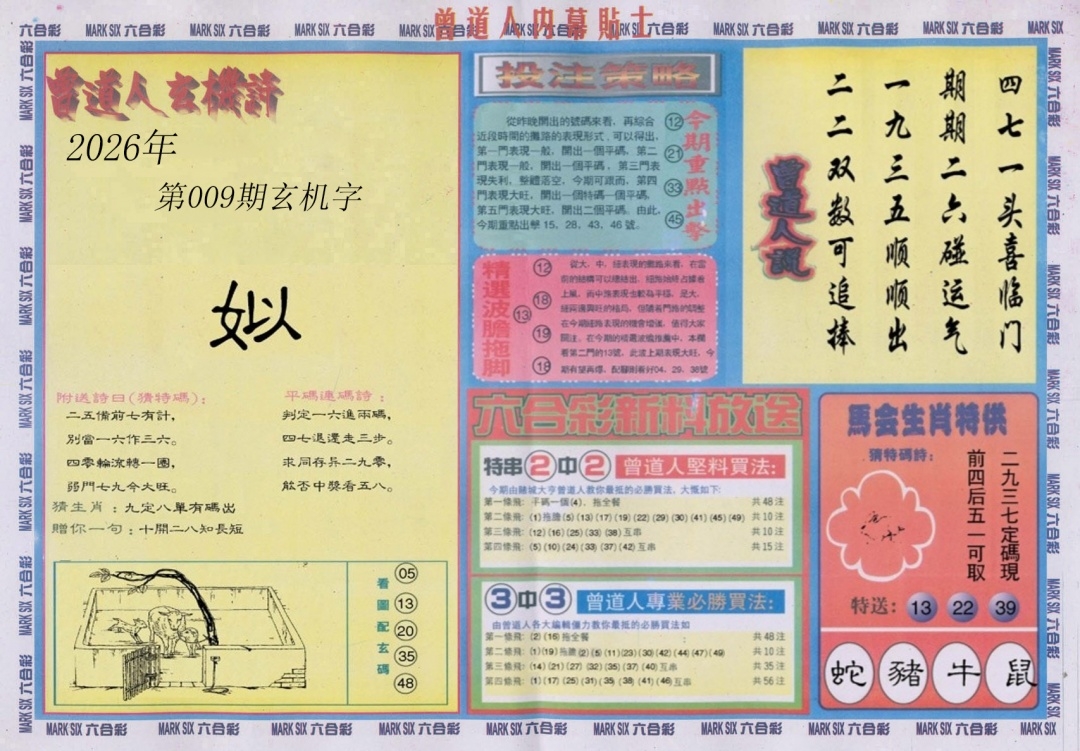 曾道人内幕貼士
六合彩 MARK SIX 六合彩 MARK SIX 六合彩 MARK SIX 六合彩 MARK SIX 六合彩 MARK SIX 六合彩 MARK SIX 六合彩 MARK SIX 六合彩 MARK SIX 六合彩 MARK SIX
曾道人玄機詩
2026年
第009期玄机字
姒
附送詩曰(猜特碼):
二五備前七有計,
別當一六作三六。
四零輪流轉一圈,
弱門七九今大旺。
平碼連碼詩:
判定一六進兩碼,
四七退還走三步。
求同存异二九零,
能否中獎看五八。
猜生肖:九定八單有碼出
贈你一句:十開二八知長短
看圖配玄碼
05
13
20
35
48
投注策略
從昨晚開出的號碼來看,再綜合
近段時間的攤路的表現形式,可以得出,
第一門表現一般,開出一個平碼,第二
門表現一般,開出一個平碼,第三門表
現失利,整體落空,今期可跟而,第四
門表現大旺,開出一個特碼一個平碼,
第五門表現大旺,開出二個平碼。由此,
今期重點出擊15、28、43、46號。
今期重點出擊
12
21
33
45
精選波膽拖脚
12
18
13
19
18
期有望再爆,配腳則看好04、29、38號
曾道人説
四七一头喜临门
期期二六碰运气
一九三五顺顺出
二二双数可追捧
六合彩新料放送
特串2中2 曾道人堅料買法:
今期由賭城大亨曾道人教你最抵的必勝買法,大概如下:
第一條飛: 平碼一個(4),拖全餐 共48注
第二條飛: (1)拖膽(5)(13)(17)(19)(22)(29)(30)(41)(45)(49) 共10注
第三條飛: (12)(16)(25)(33)(38)互串 共10注
第四條飛: (5)(10)(24)(33)(37)(42)互串 共15注
3中3 曾道人專業必勝買法:
由曾道人各大編輯僅力教你最抵的必勝買法如
第一條飛: (2)(16)拖全餐 共48注
第二條飛: (1)(19)拖膽(2)(5)(11)(23)(30)(42)(44)(47)(49) 共10注
第三條飛: (14)(21)(27)(32)(35)(37)(40)互串 共35注
第四條飛: (1)(17)(25)(31)(35)(38)(41)(46)互串 共56注
馬会生肖特供
猜特碼詩:
二九三七定碼現
前四后五一可取
特送: 13 22 39
蛇 豬 牛 鼠
MARK SIX 六合彩 MARK SIX 六合彩 MARK SIX 六合彩 MARK SIX 六合彩 MARK SIX 六合彩 MARK SIX 六合彩 MARK SIX 六合彩 MARK SIX 六合彩 MARK SIX 六合彩 MARK SIX